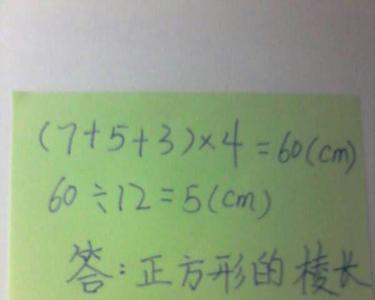 (7+5+3)×4=60(cm)
60÷12=5(cm)
答:正方形的棱长